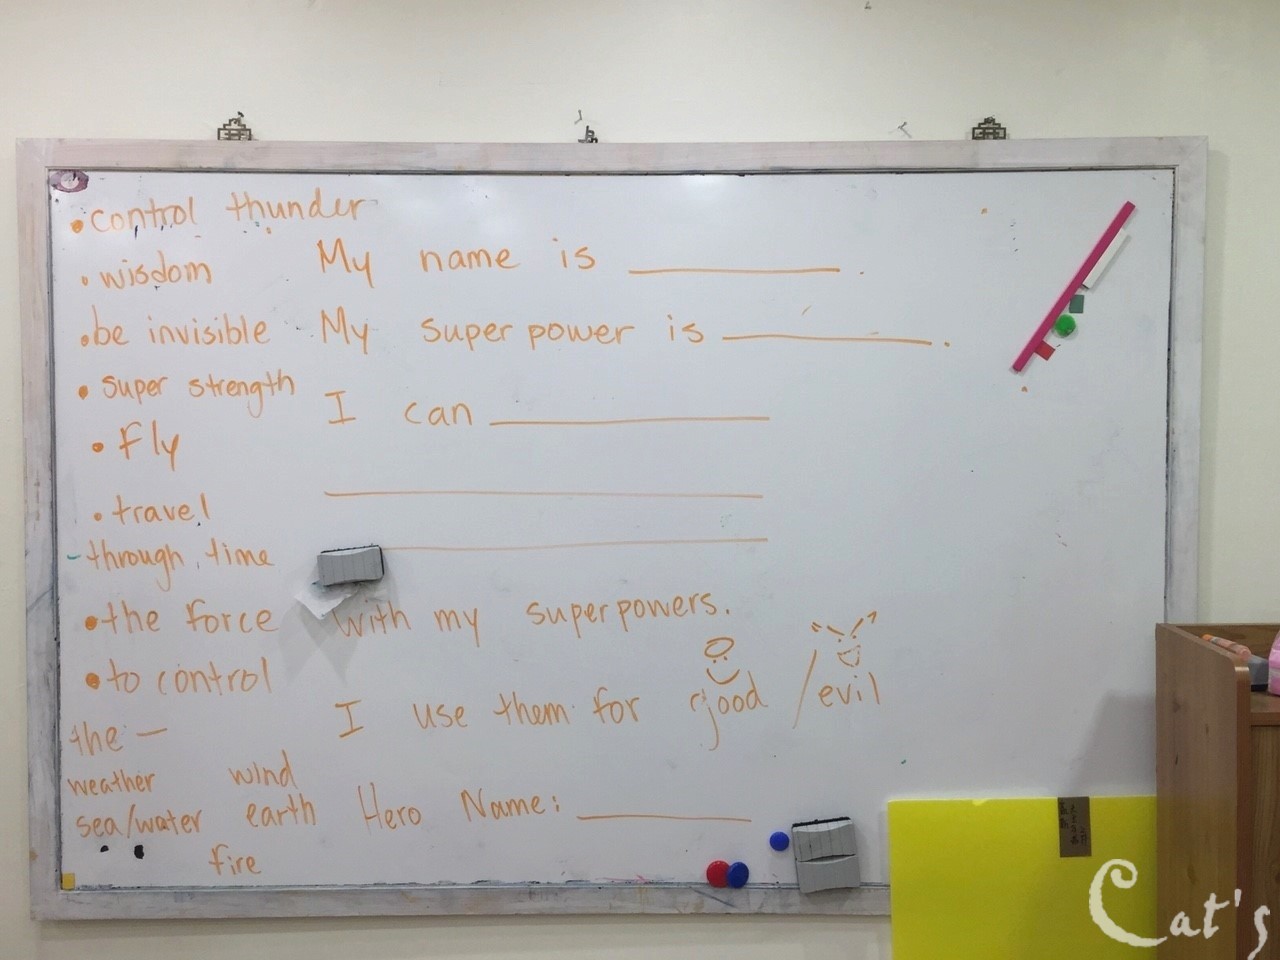 • control thunder
• wisdom
• be invisible
• super strength
• Fly
• travel
through time
• the force
• to control
the —
weather wind
sea/water earth
fire
My name is ________.
My super power is ________.
I can ________
with my superpowers.
I use them for good / evil
Hero Name: ________
Cat's